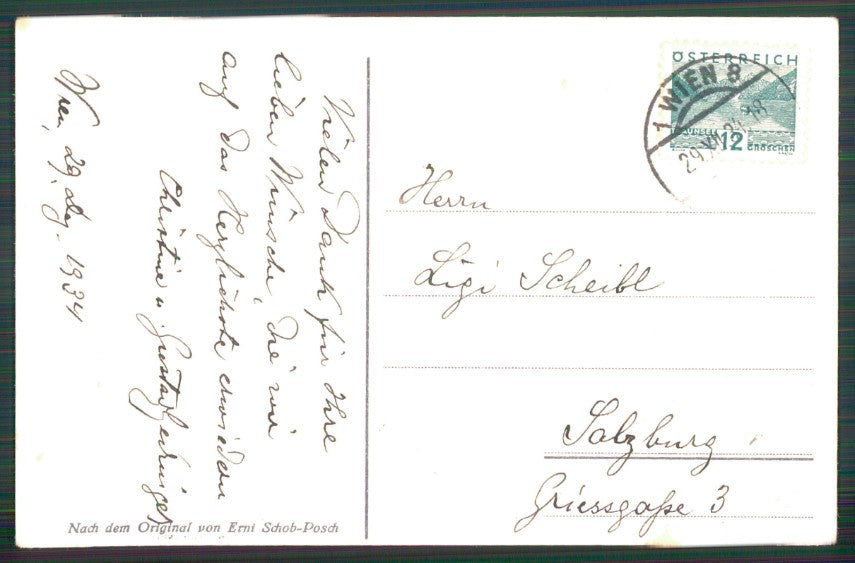 Vielen Dank für Ihre
lieben Wünsche, die wir
auf das Herzlichste erwiedern
Christine u Gustav
Wien, 29. Dez. 1934
Nach dem Original von Erni Schob-Posch
ÖSTERREICH
12
GROSCHEN
1 WIEN 8
Herrn
Ligi Scheibl
Salzburg
Griessgaße 3